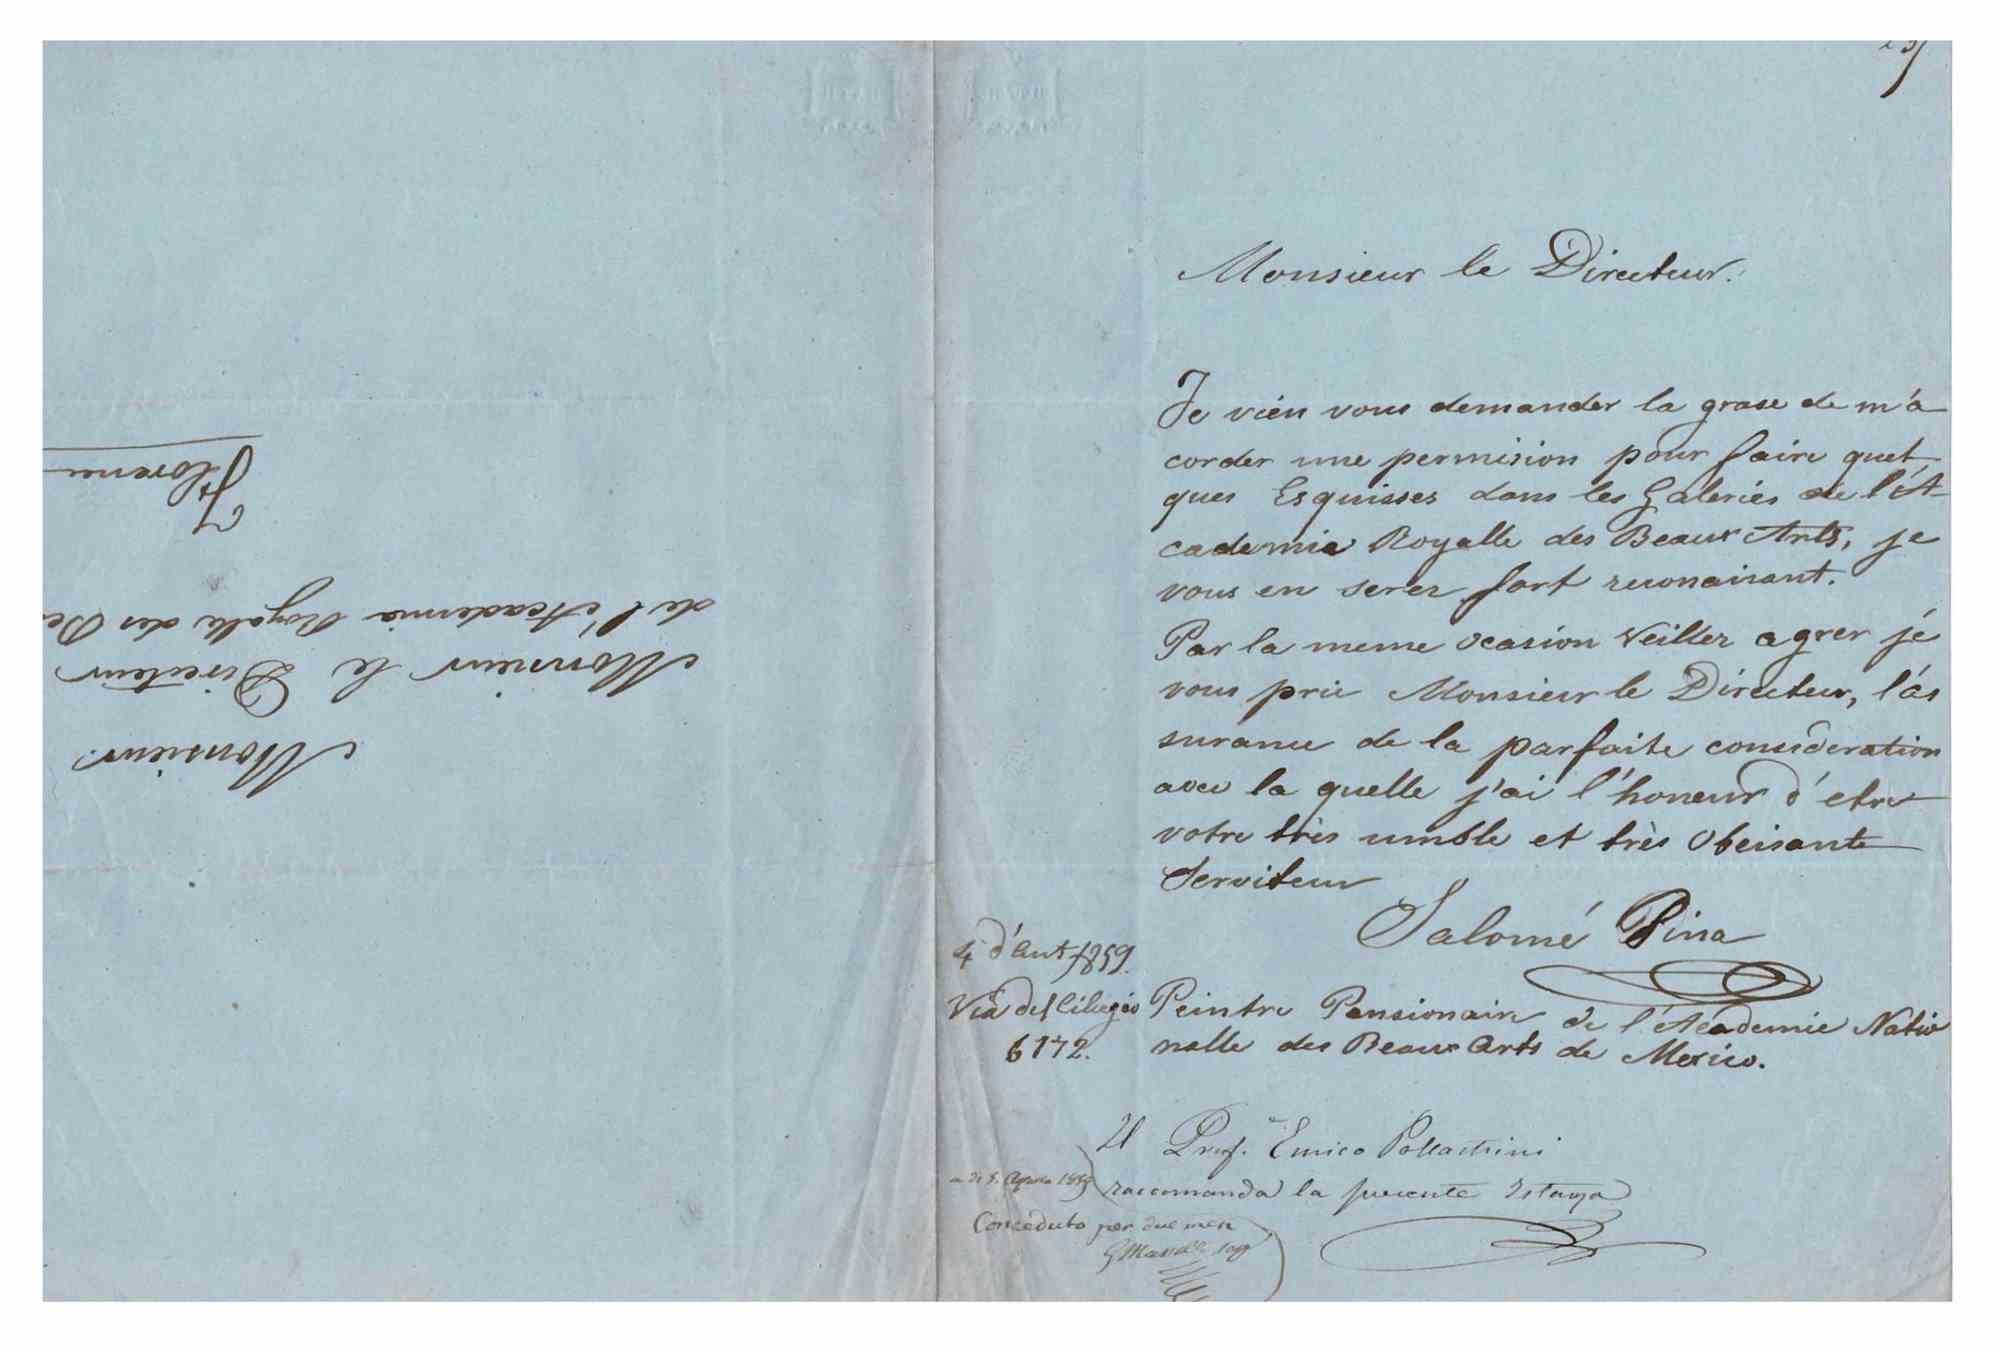 Monsieur le Directeur.
Je vien vous demander la grase de m'a
corder une permision pour faire quel
ques Esquisses dans les Galeries de l'A-
cademie Royalle des Beaux Arts, je
vous en serez fort reconaisant.
Par la meme ocasion Veiller agrer je
vous prie Monsieur le Directeur, l'as
surance de la parfaite consideration
avec la quelle j'ai l'honeur d'etre
votre très umble et très Obeisante
Serviteur
Salomé Pina
Peintre Pensionaire de l'Academie Natio
nalle des Beaux Arts de Mexico.
4 d'Aut 1859.
Via del Ciliegio
6172.
Il Prof. Enrico Pollastrini
raccomanda la presente Istanza
a di 5. Agosto 1859
Conceduto per due mesi
Monsieur.
Monsieur le Directeur
de l'Academia Royalle des Be
Florence